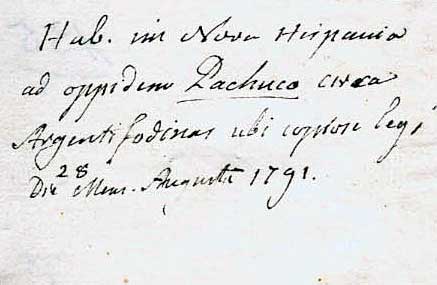 Hab. in Nova Hispania
ad oppidum Pachuco circa
Argenti fodinas ubi copiose legi
Die 28 Mens. Augusti 1791.